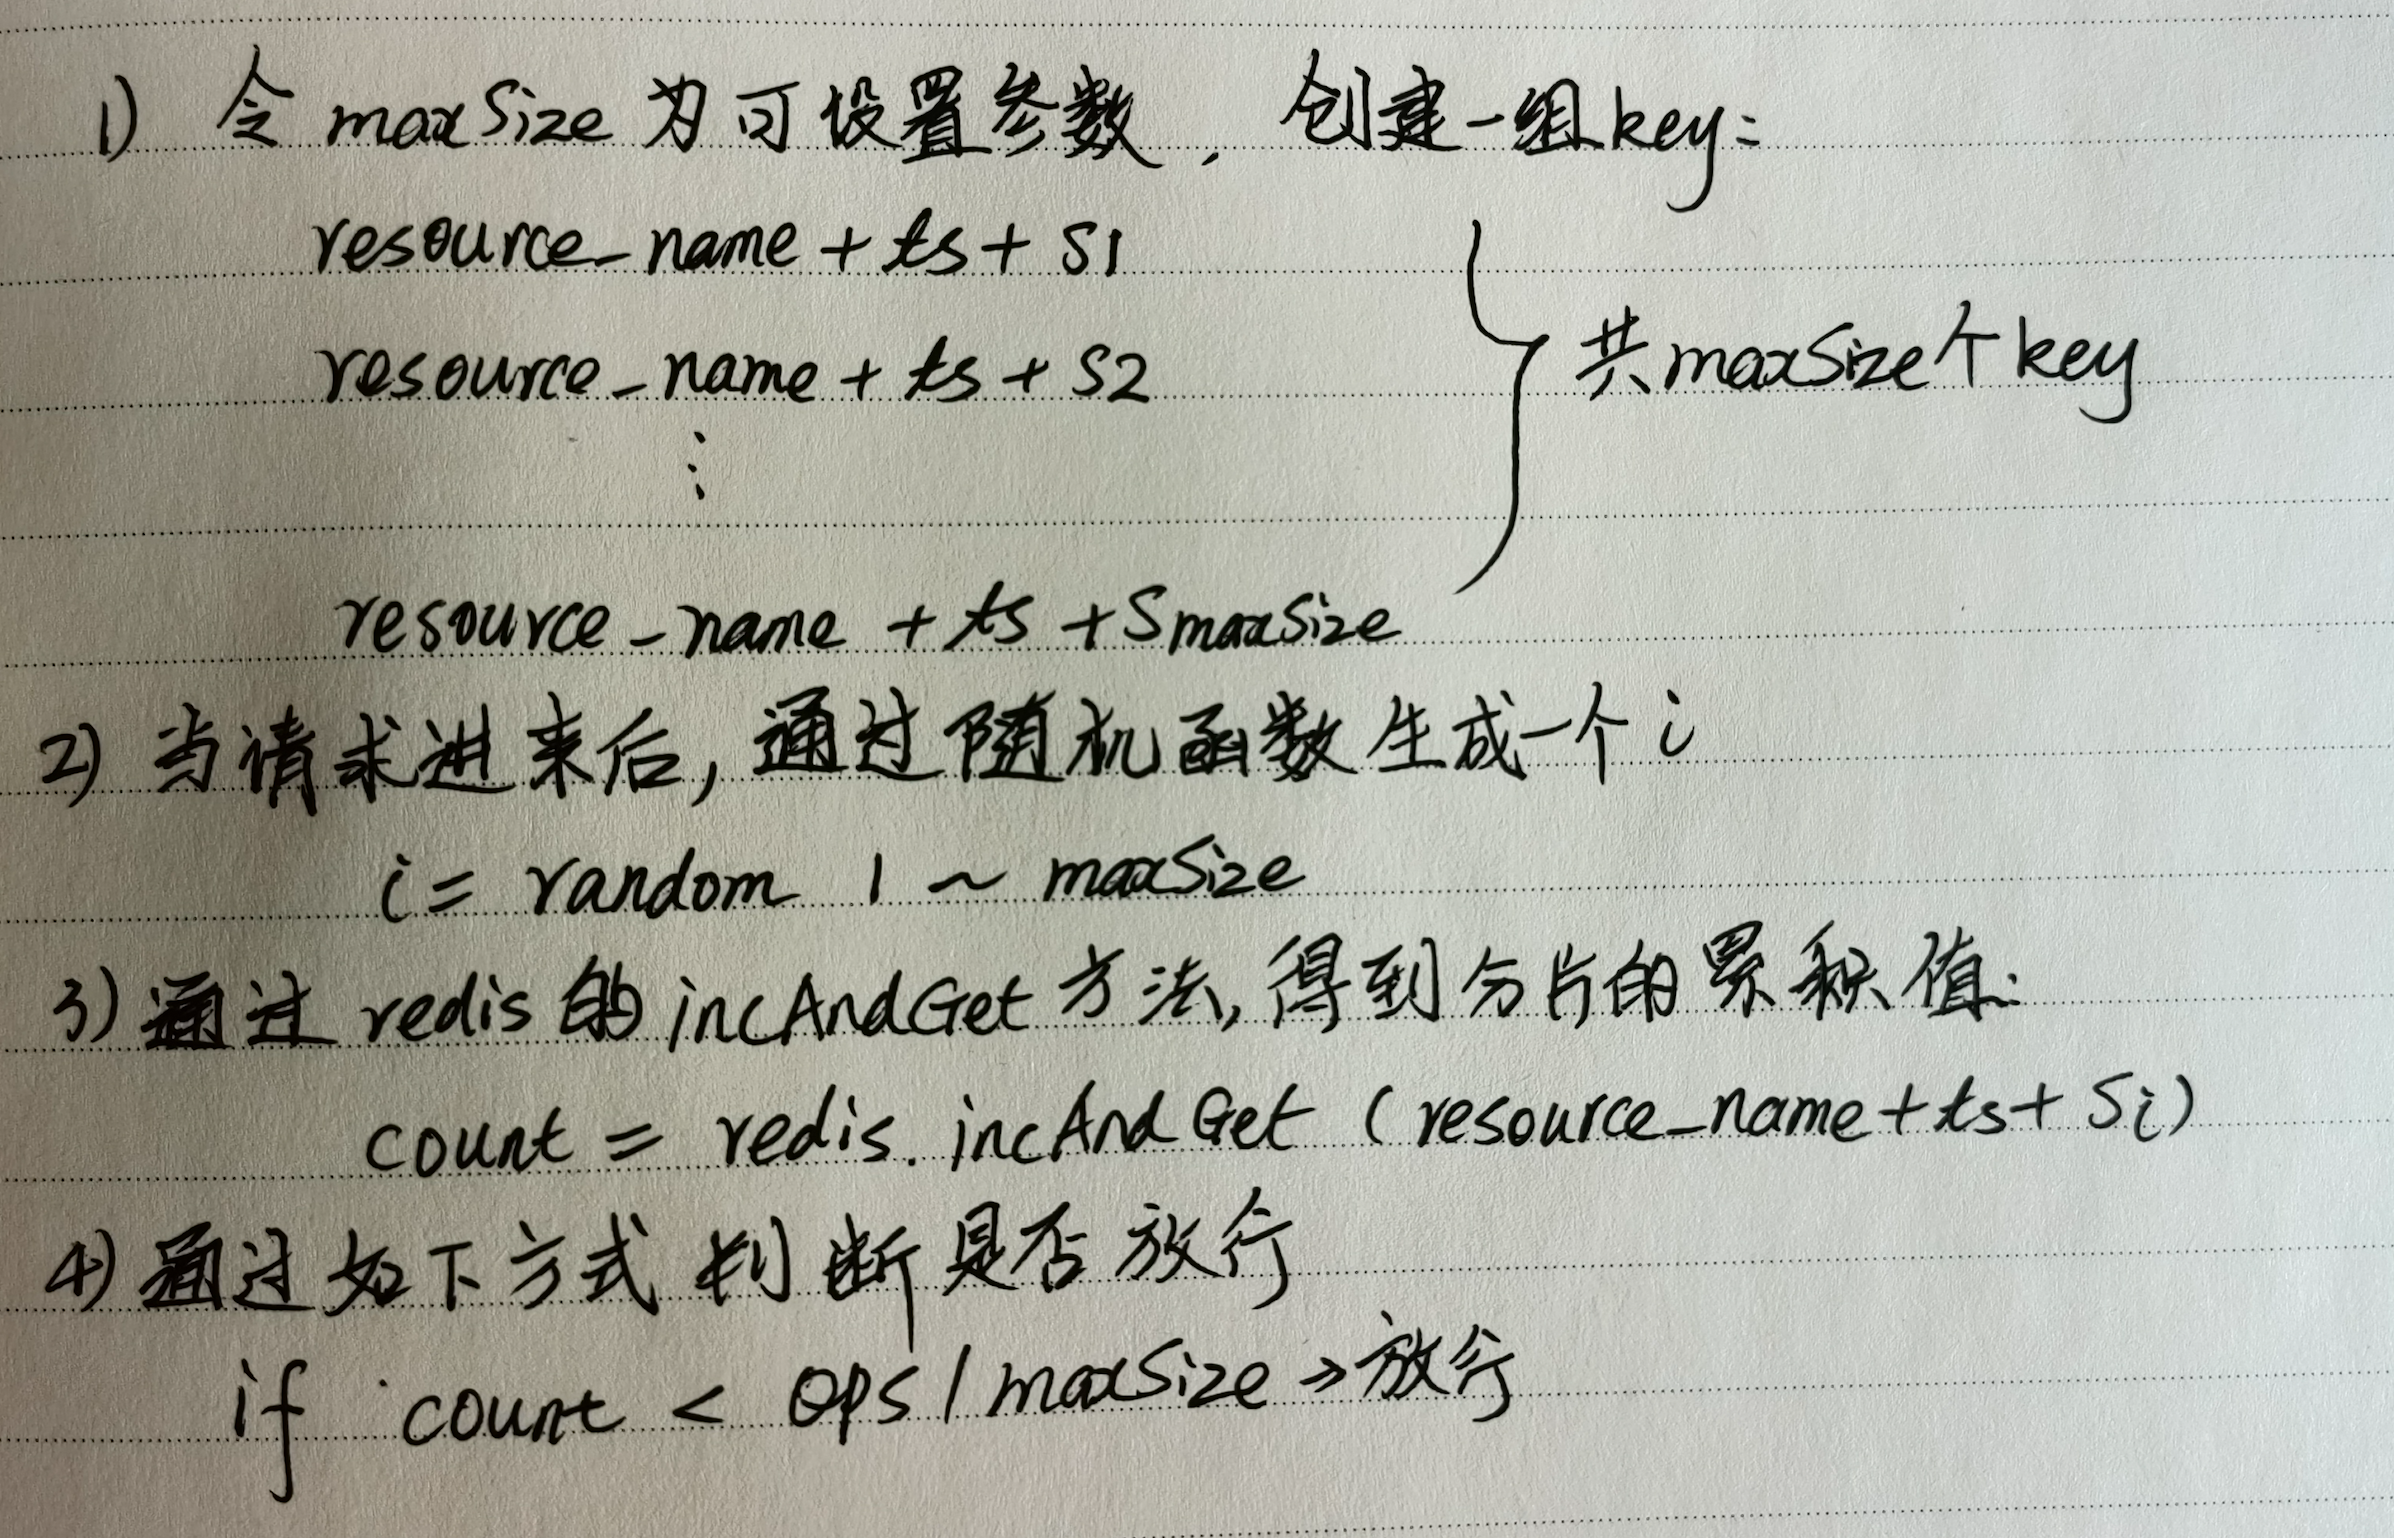 1) 令maxSize为可设置参数, 创建一组key:
resource_name + ts + S1
resource_name + ts + S2
共maxSize个key
⋮
resource_name + ts + SmaxSize
2) 当请求进来后, 通过随机函数生成一个i
i = random 1 ~ maxSize
3) 通过redis的incAndGet方法, 得到分片的累积值:
count = redis.incAndGet (resource_name + ts + Si)
4) 通过如下方式判断是否放行
if count < QPS / maxSize → 放行